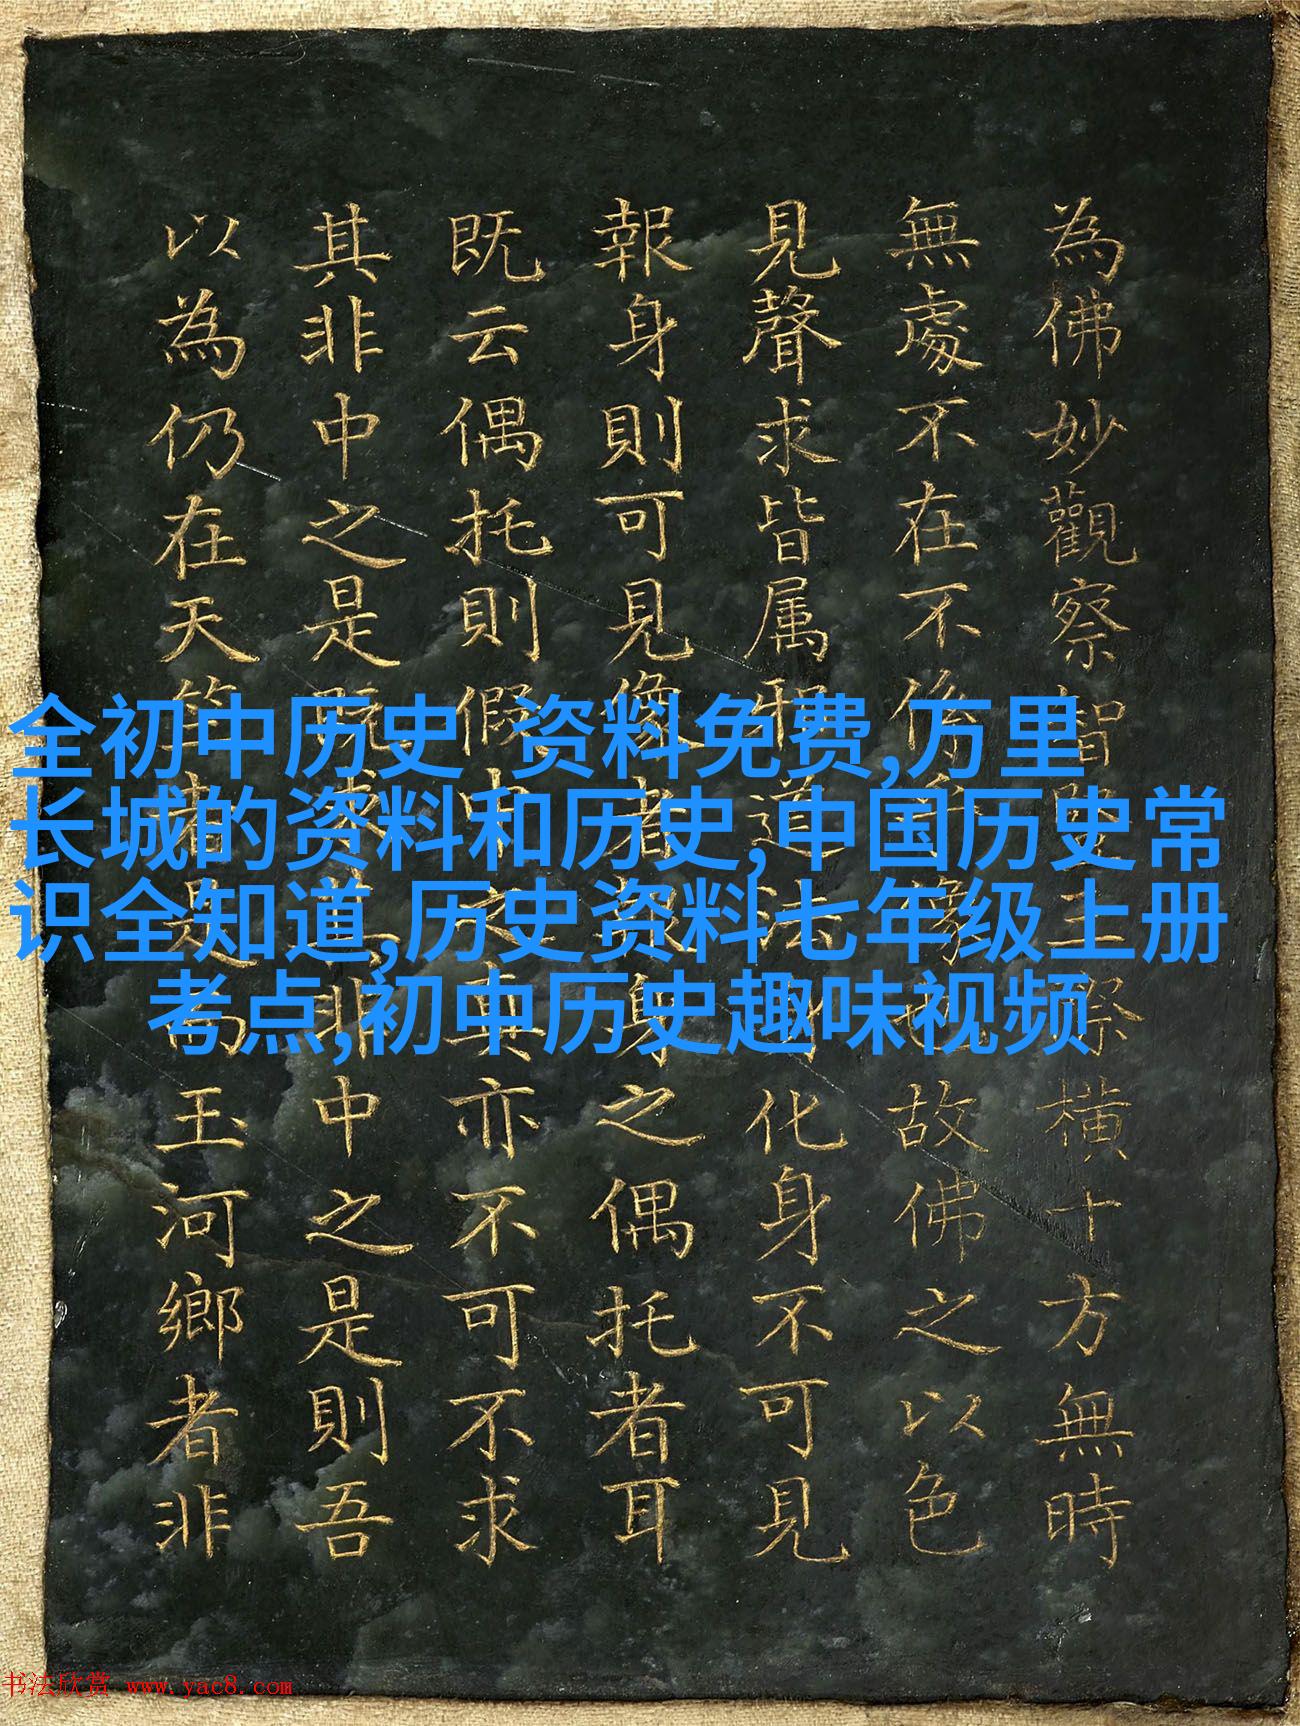 為佛妙觀察智竪三際橫十方無時
無處不在不故佛之以色
見聲求皆属邪道法化身不可見
報身則可見像者報身之偶托者耳
既云偶托則假中之真亦不可不求
其非中之是既求其非中之是則吾
以為仍在天竺者是為玉河鄉者非
全初中历史 资料免费,万里
长城的资料和历史,中国历史常
识全知道,历史资料七年级上册
考点,初中历史趣味视频
书法欣赏 www.yac8.com